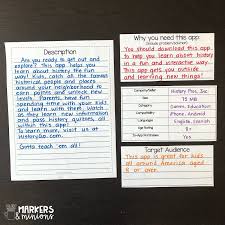 Description
Are you ready to get out and
explore? This app helps you
learn about history the fun
way! Kids, catch all the famous
historical people and places
around your neighborhood to
earn points and unlock new
levels. Parents, have fun
spending time with your kids
and learn with them. Watch
videos, view new information
and pass history quizzes, all
within this app!
To learn more, visit us at
HistoryGo.com.
Gotta teach 'em all!
Why you need this app:
You should download this app
to help you learn about history
in a fun and interactive way.
This app gets you outside
and learning new things!
History Pics, Inc
Size
75 MB
Category
Games, Education
Compatibility
iPhone, Android
Languages
English, Spanish
Age
8+
Price
Target Audience
This app is great for kids
all around America aged
8 or over.
MARKERS
& minions